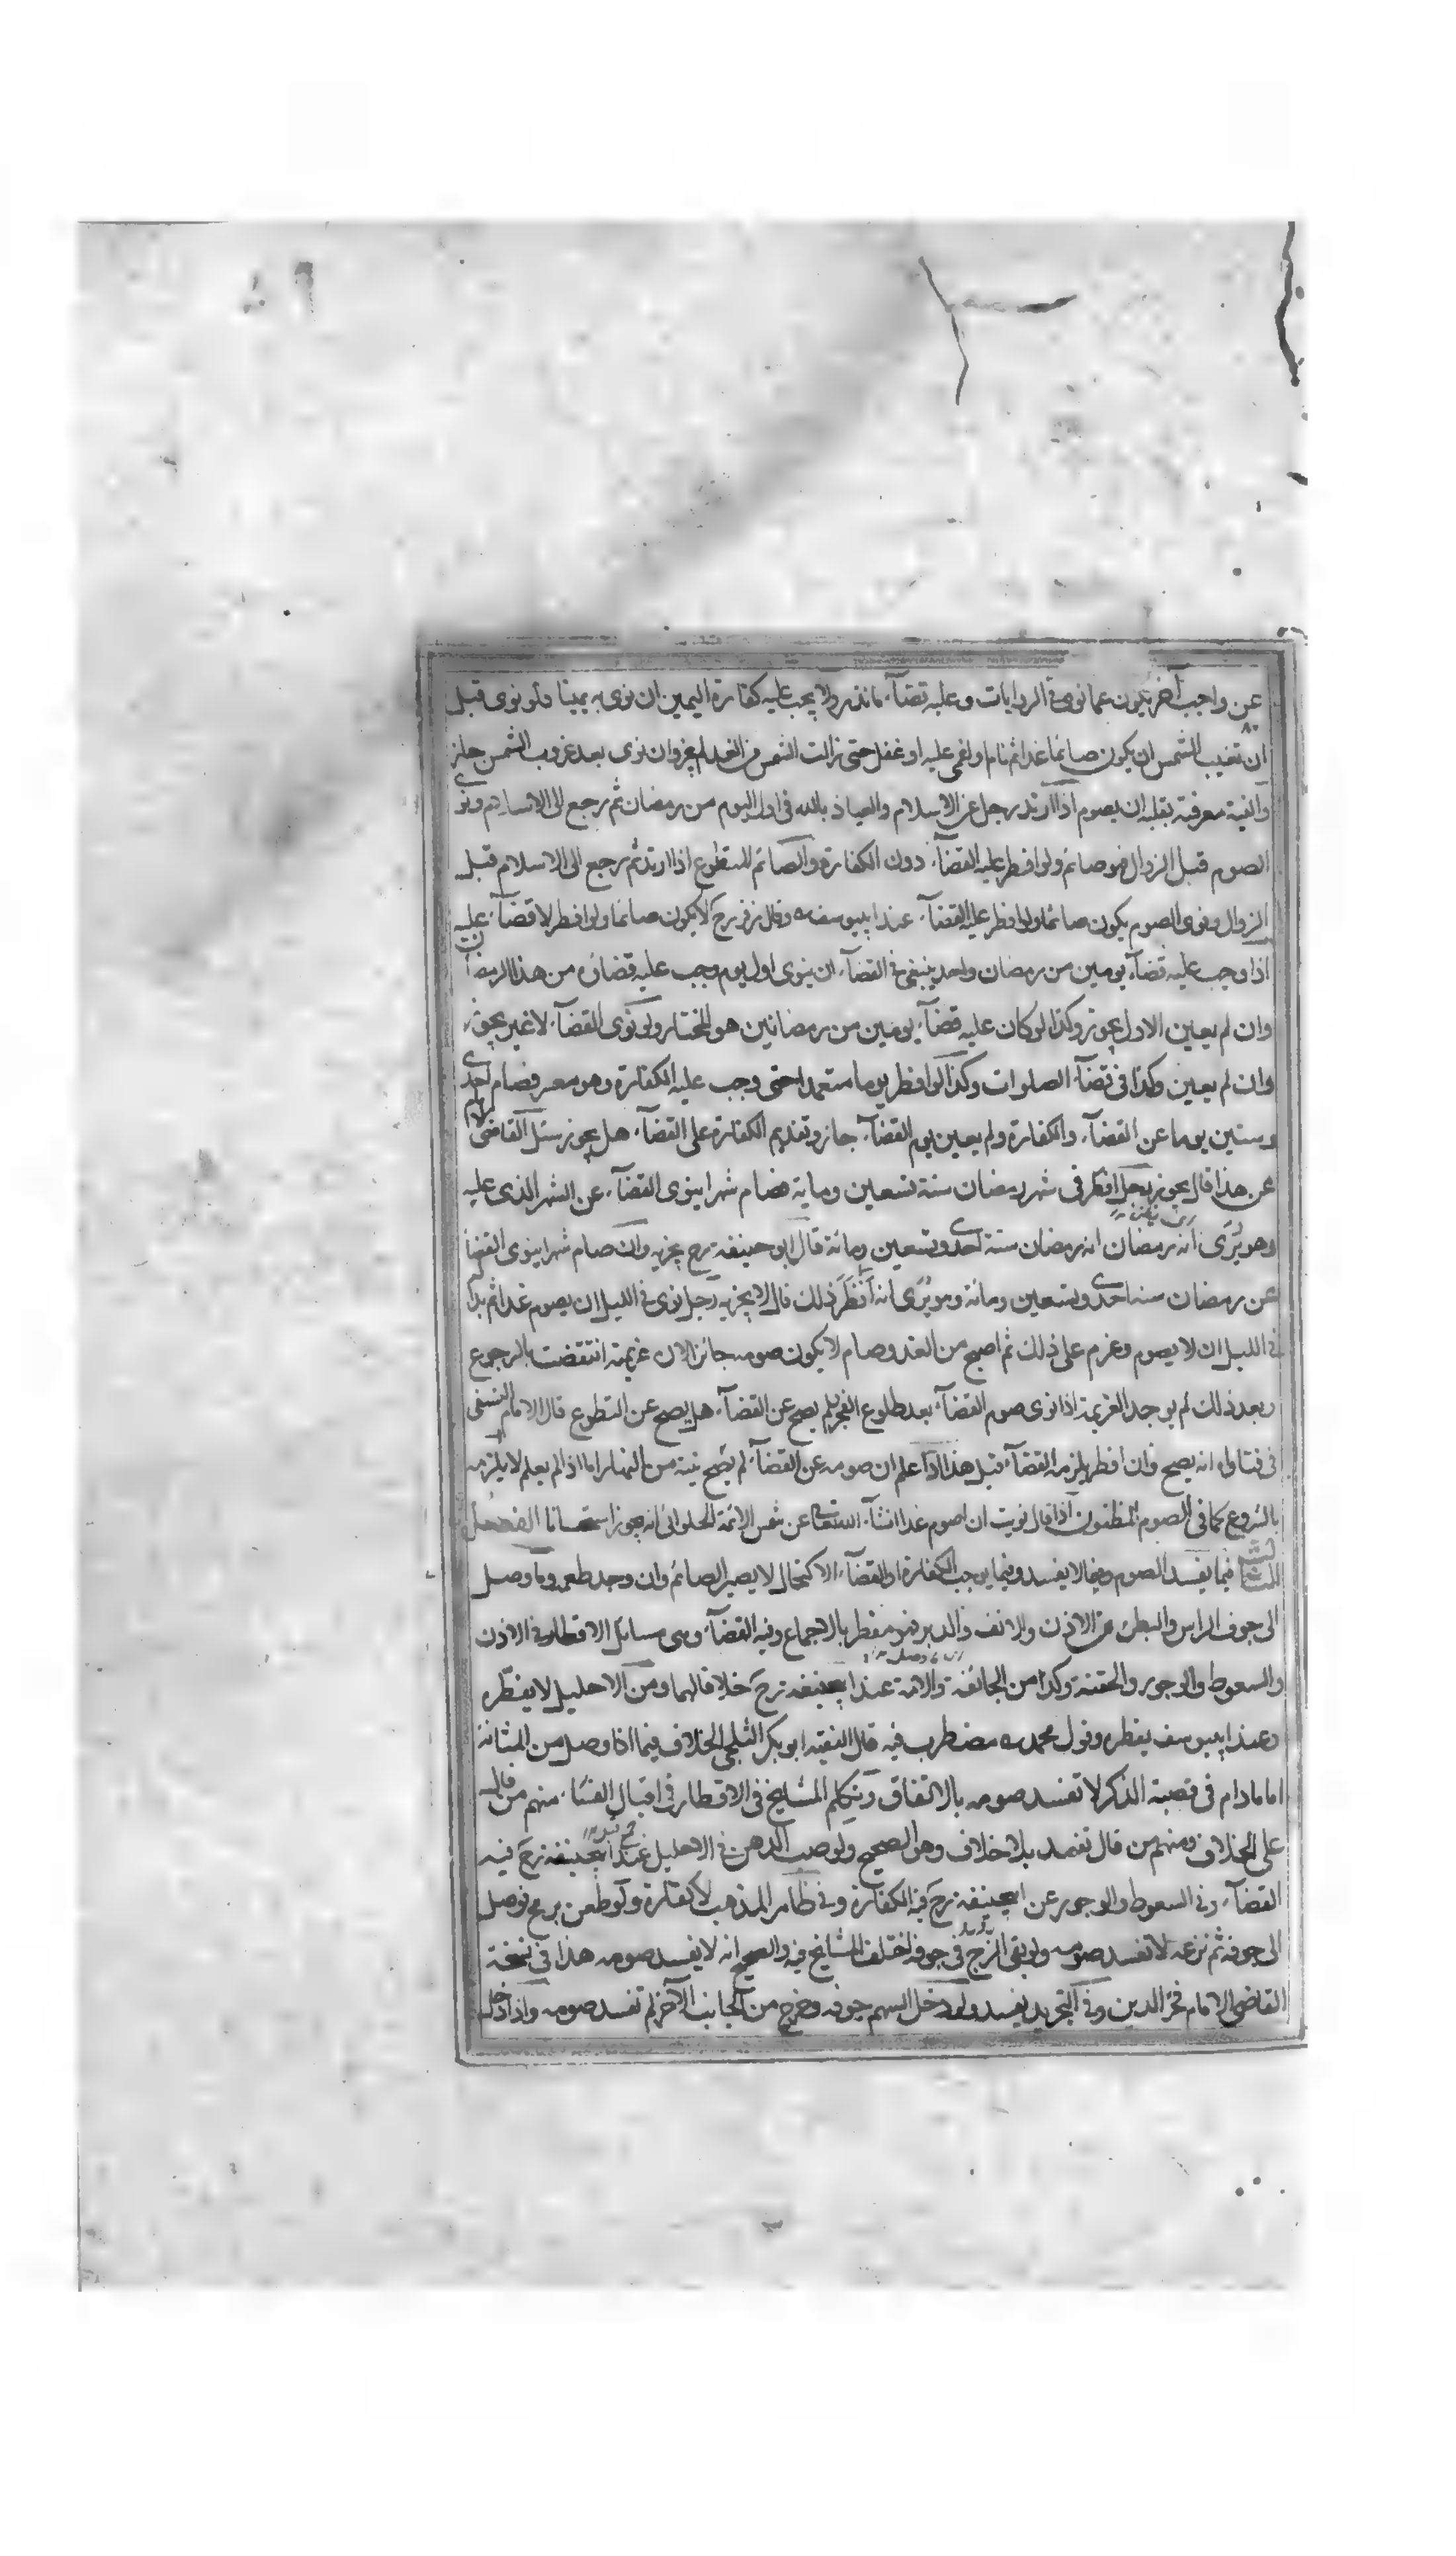 عن واجب آخر يكون عما نوى في الروايات وعليه قضآء ما نذر ولا يجب عليه كفارة اليمين ان نوى به يمينا ولو نوى قبل
ان تغيب الشمس ان يكون صائما غدا ثم نام او اغمي عليه او غفل حتى زالت الشمس من الغد لم يجز وان نوى بعد غروب الشمس جاز
والنية معرفته بقلبه ان يصوم اذا ارتد رجل عن الاسلام والعياذ بالله في اول اليوم من رمضان ثم رجع الى الاسلام ونوى
الصوم قبل الزوال فهو صائم ولو افطر عليه القضآء دون الكفارة والصائم المتطوع اذا ارتد ثم رجع الى الاسلام قبل
الزوال ونوى الصوم يكون صائما ولو افطر عليه القضآء عند ابييوسف وقال زفر رح لا يكون صائما ولو افطر لا قضآء عليه
اذا وجب عليه قضآء يومين من رمضان واحد ينبغي في القضآء ان ينوى اول يوم وجب عليه قضاؤه من هذا الرمضان
وان لم يعين الاول يجوز وكذا لو كان عليه قضآء يومين من رمضانين هو المختار ولو نوى القضآء لا غير يجوز
وان لم يعين وكذا في قضآء الصلوات وكذا لو افطر يوما متعمدا حتى وجب عليه الكفارة وهو معسر فصام احدى
وستين يوما عن القضآء والكفارة ولم يعين يوم القضآء جاز وتقديم الكفارة على القضآء هل يجوز سئل القاضي الامام
عن هذا قال يجوز رجل افطر في شهر رمضان سنة تسعين وماية فصام شهرا ينوى القضآء عن الشهر الذى عليه
وهو يرى انه رمضان انه رمضان سنة احدى وتسعين ومائة قال ابو حنيفة رح يجزيه وان صام شهرا ينوى القضا
عن رمضان سنة احدى وتسعين ومائة وهو يرى انه افطر ذلك قال لا يجزيه رجل نوى في الليل ان يصوم غدا ثم بدا له
في الليل ان لا يصوم وعزم على ذلك ثم اصبح من الغد وصام لا يكون صومه جائزا لان عزيمته انتقضت بالرجوع
وبعد ذلك لم يوجد العزيمة اذا نوى صوم القضآء بعد طلوع الفجر لم يصح عن القضآء هل يصح عن التطوع قال الامام النسفي
في فتاواه انه يصح وان افطر يلزمه القضآء قيل هذا اذا علم ان صومه عن القضآء لم يصح نيته من النهار اما اذا لم يعلم لا يلزمه
بالشروع كما في الصوم المظنون اذا قال نويت ان اصوم غدا انشآء الله تعالى عن شمس الائمة الحلوائي انه يجوز استحسانا الفصل
الثالث فيما يفسد الصوم وفيما لا يفسد وفيما يوجب الكفارة او القضآء الاكتحال لا يضر الصائم وان وجد طعمه وما وصل
الى جوف الراس والبطن من الاذن والانف والدبر فهو مفطر بالاجماع وفيه القضآء وهى مسائل الاقطار في الاذن
والسعوط والوجور والحقنة وكذا من الجائفة والامة عند ابيحنيفة رح خلافا لهما ومن الاحليل لا يفطره
وعند ابييوسف يفطره وقول محمد مضطرب فيه قال الفقيه ابو بكر البلخي الخلاف فيما اذا وصل من المثانة
اما ما دام في قصبة الذكر لا تفسد صومه بالاتفاق وتكلم المشايخ في الاقطار في اقبال النسآء منهم من قال
على الخلاف ومنهم من قال تفسد بلا خلاف وهو الصحيح ولو صب الدهن في الاحليل عند ابيحنيفة رح فيه
القضآء وفي السعوط والوجور عن ابيحنيفة رح فيه الكفارة وفي ظاهر المذهب لا كفارة ولو طعن برمح فوصل
الى جوفه ثم نزعه لا تفسد صومه ولو بقي الزج في جوفه اختلف المشايخ فيه والصحيح انه لا يفسد صومه هذا في نسخة
القاضي الامام فخر الدين وفي التجريد يفسد ولو دخل السهم جوفه وخرج من الجانب الآخر لم تفسد صومه واذا دخل